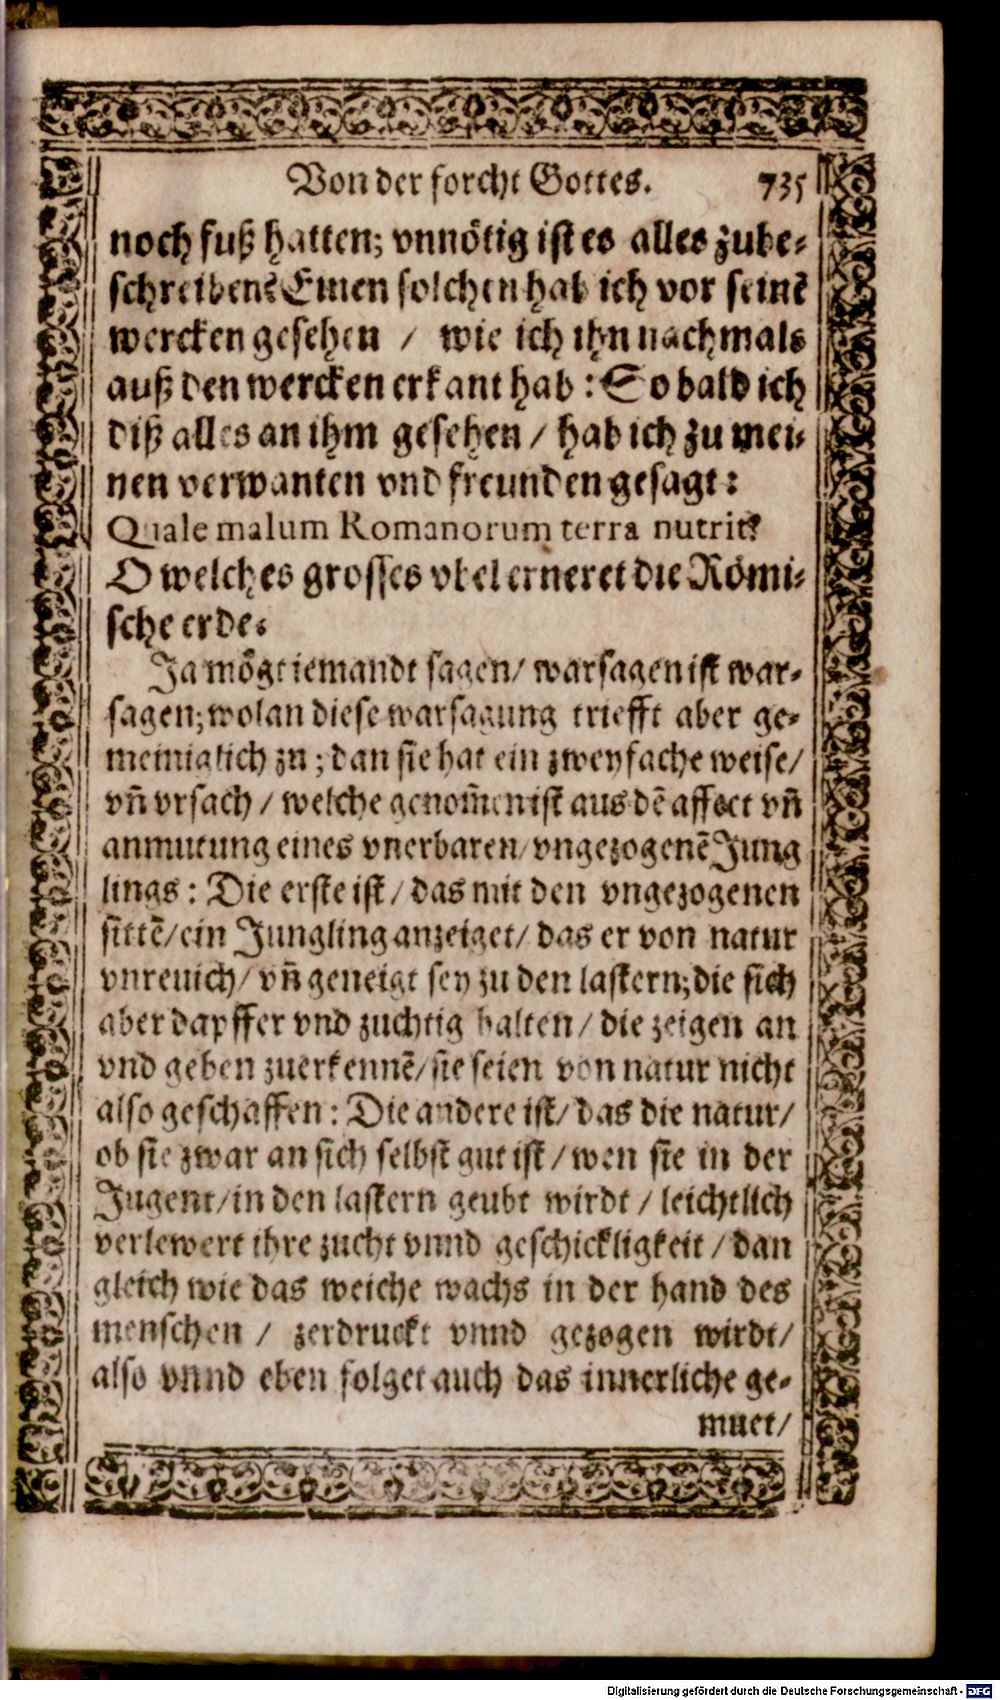 Von der forcht Gottes. 735
noch fuß hatten; vnnötig ist es alles zube-
schreiben: Einen solchen hab ich vor seinē
wercken gesehen / wie ich ihn nachmals
auß den wercken erkant hab: So bald ich
diß alles an ihm gesehen / hab ich zu mei-
nen verwanten vnd freunden gesagt:
Quale malum Romanorum terra nutrit?
O welches grosses vbel erneret die Römi-
sche erde.
Ja mögt iemandt sagen / warsagen ist war-
sagen; wolan diese warsagung triefft aber ge-
meiniglich zu; dan sie hat ein zweyfache weise /
vñ vrsach / welche genom̄en ist aus dē affect vñ
anmutung eines vnerbaren / vngezogenē Jung
lings: Die erste ist / das mit den vngezogenen
sittē / ein Jungling anzeiget / das er von natur
vnreuich / vñ geneigt sey zu den lastern; die sich
aber dapffer vnd zuchtig halten / die zeigen an
vnd geben zuerkennē / sie seien von natur nicht
also geschaffen: Die andere ist / das die natur /
ob sie zwar an sich selbst gut ist / wen sie in der
Jugent / in den lastern geubt wirdt / leichtlich
verlewert ihre zucht vnnd geschickligkeit / dan
gleich wie das weiche wachs in der hand des
menschen / zerdruckt vnnd gezogen wirdt /
also vnnd eben folget auch das innerliche ge-
muet /
Digitalisierung gefördert durch die Deutsche Forschungsgemeinschaft - DFG